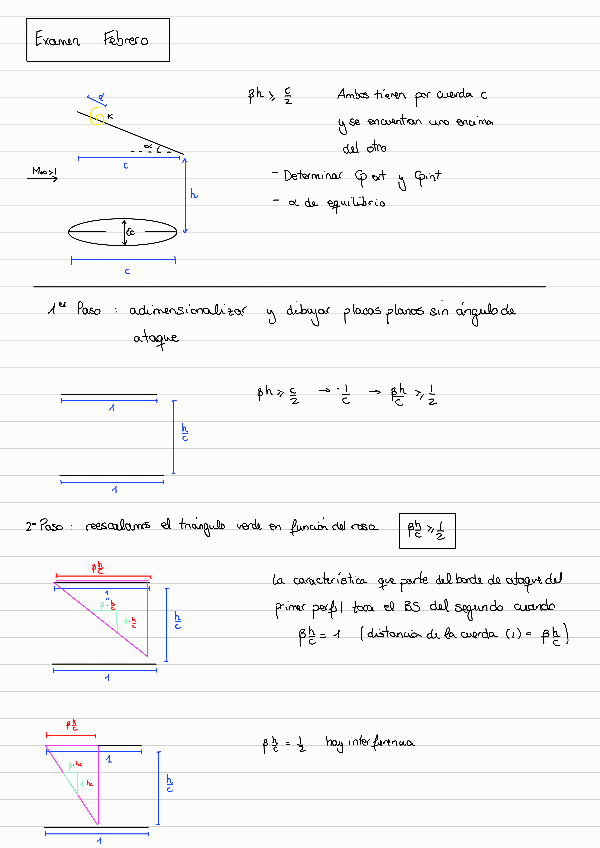 Examen Febrero
βh ≥ c/2 Ambos tienen por cuerda c
y se encuentran uno encima
del otro
- Determinar Cp ext y Cp int
- α de equilibrio
α
K
α
c
M∞>1
h
c
1er Paso : adimensionalizar y dibujar placas planas sin ángulo de
ataque
βh ≥ c/2 → · 1/c → βh/c ≥ 1/2
1
h/c
1
2º Paso : reescalamos el triángulo verde en función del rosa βh/c ≥ 1/2
βh/c
1
β·h/c
1·h/c
h/c
1
La característica que parte del borde de ataque del
primer perfil toca el BS del segundo cuando
βh/c = 1 (distancia de la cuerda (1) = βh/c)
βh/c
1
β·h/c
1 h/c
h/c
1
βh/c = 1/2 hay interferencia